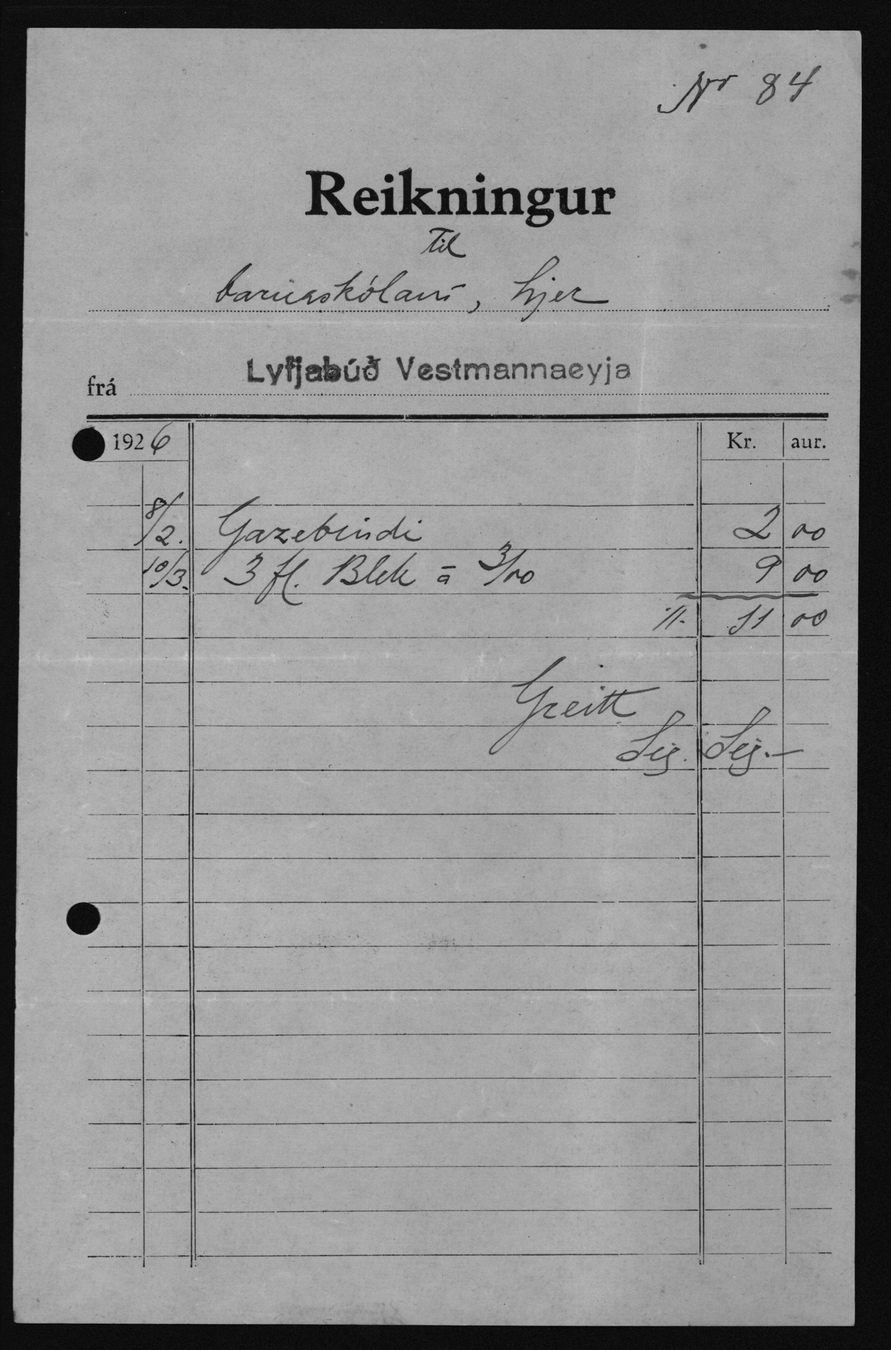 Nr 84
Reikningur
Til
barnaskólans, hjer
frá Lyfjabúð Vestmannaeyja
1926 Kr. aur.
8/2. Gazebindi 2 00
10/3. 3 fl. Blek á 3/00 9 00
11 00
Greitt
Sig. Sig.